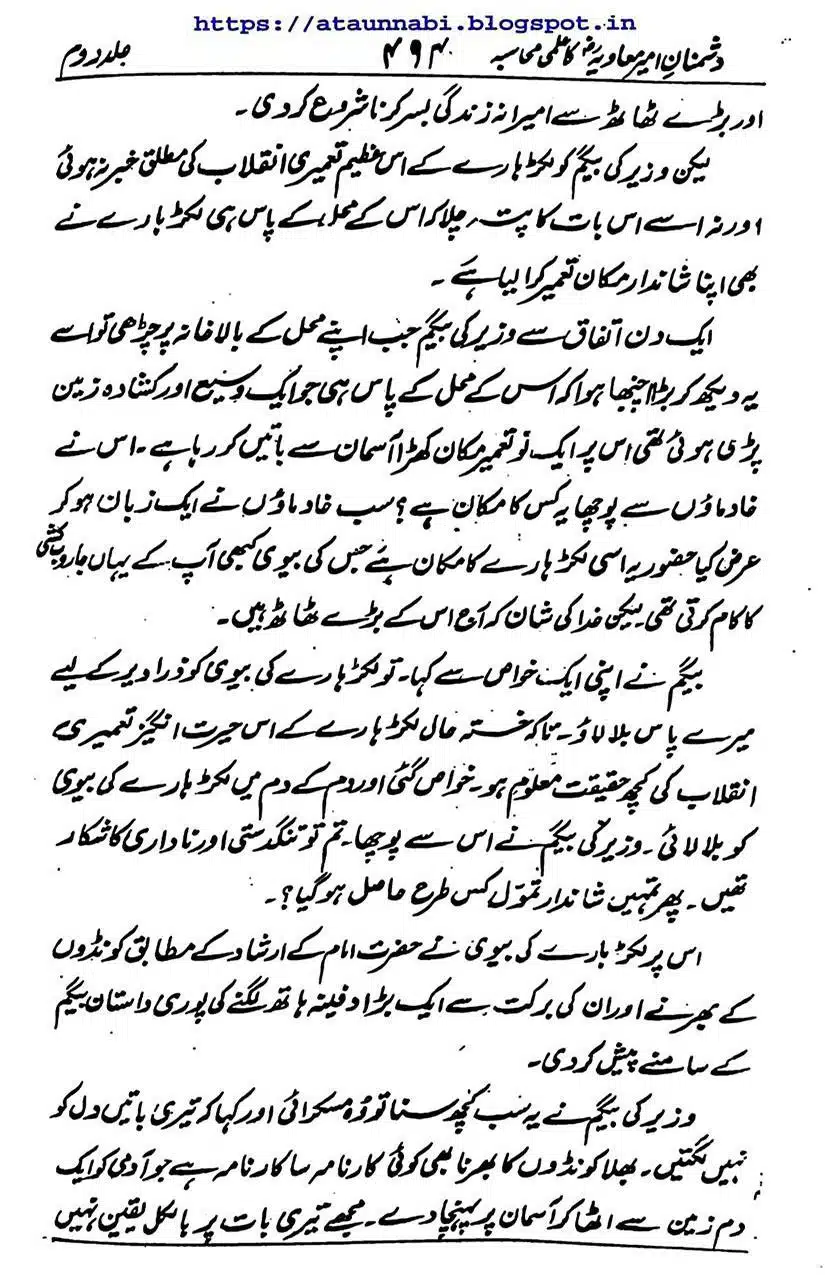 https://ataunnabi.blogspot.in
دشمنانِ امیر معاویہؓ کا علمی محاسبہ ۴۹۴ جلد دوم
اور بڑے ٹھاٹھ سے امیرانہ زندگی بسر کرنا شروع کر دی۔
لیکن وزیر کی بیگم کو لکڑہارے کے اس عظیم تعمیری انقلاب کی مطلق خبر نہ ہوئی
اور نہ اسے اس بات کا پتہ چلا کہ اس کے محل کے پاس ہی لکڑہارے نے
بھی اپنا شاندار مکان تعمیر کرا لیا ہے۔
ایک دن اتفاق سے وزیر کی بیگم جب اپنے محل کے بالا خانہ پر چڑھی تو اسے
یہ دیکھ کر بڑا اچنبھا ہوا کہ اس کے محل کے پاس ہی جو ایک وسیع اور کشادہ زمین
پڑی ہوئی تھی اس پر ایک نو تعمیر مکان کھڑا آسمان سے باتیں کر رہا ہے۔ اس نے
خادماؤں سے پوچھا یہ کس کا مکان ہے؟ سب خادماؤں نے ایک زبان ہو کر
عرض کیا حضور یہ اسی لکڑہارے کا مکان ہے جس کی بیوی کبھی آپ کے یہاں جاروب کشی
کا کام کرتی تھی۔ لیکن خدا کی شان کہ آج اس کے بڑے ٹھاٹھ ہیں۔
بیگم نے اپنی ایک خواص سے کہا۔ تو لکڑہارے کی بیوی کو ذرا دیر کے لیے
میرے پاس بلا لاؤ۔ تاکہ خستہ حال لکڑہارے کے اس حیرت انگیز تعمیری
انقلاب کی کچھ حقیقت معلوم ہو۔ خواص گئی اور دم کے دم میں لکڑہارے کی بیوی
کو بلا لائی۔ وزیر کی بیگم نے اس سے پوچھا۔ تم تو تنگدستی اور ناداری کا شکار
تھیں۔ پھر تمہیں شاندار تموّل کس طرح حاصل ہو گیا؟۔
اس پر لکڑہارے کی بیوی نے حضرت امام کے ارشاد کے مطابق کونڈوں
کے بھرنے اور ان کی برکت سے ایک بڑا دفینہ ہاتھ لگنے کی پوری داستان بیگم
کے سامنے پیش کر دی۔
وزیر کی بیگم نے یہ سب کچھ سنا تو وہ مسکرائی اور کہا کہ تیری باتیں دل کو
نہیں لگتیں۔ بھلا کونڈوں کا بھرنا بھی کوئی کارنامہ سا کارنامہ ہے جو آدمی کو ایک
دم زمین سے اٹھا کر آسمان پر پہنچا دے۔ مجھے تیری بات پر بالکل یقین نہیں